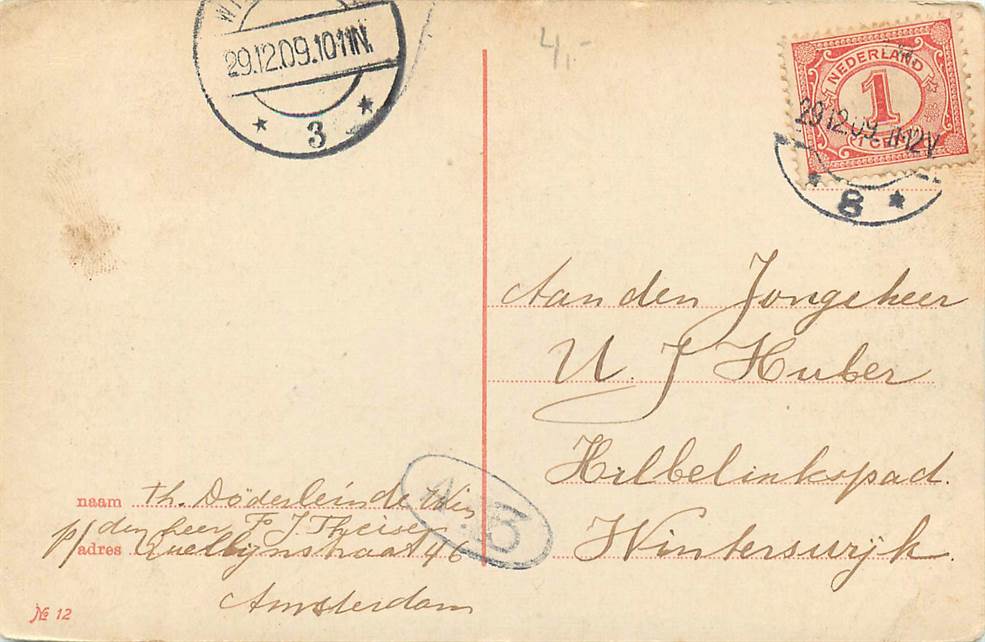 WI
29.12.09.10-11N.
3
4,-
NEDERLAND
1
29.12.09. 11-12V
1 C
8
Aan den Jongeheer
U. J Huber
Hilbelinkspad.
Winterswijk.
naam Th. Döderlein de Win
p/ den heer F. J. Theisen
adres Quellijnstraat 46
Amsterdam
№ 12